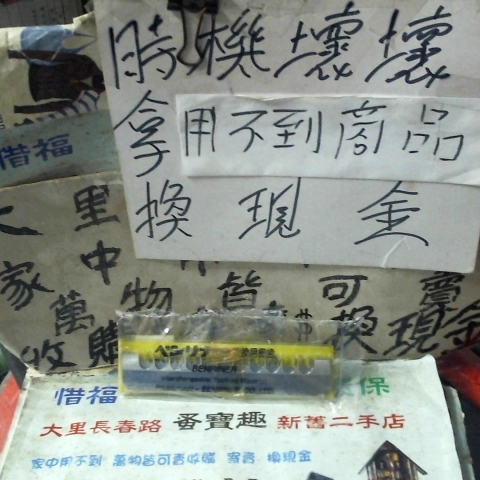 時機壞壞
拿用不到商品
換現金
惜福
大里
家中
萬物皆可賣
收購
換現金
BENRINER
惜福
保
大里長春路 蚤寶趣 新舊二手店
家中用不到 萬物皆可
換現金